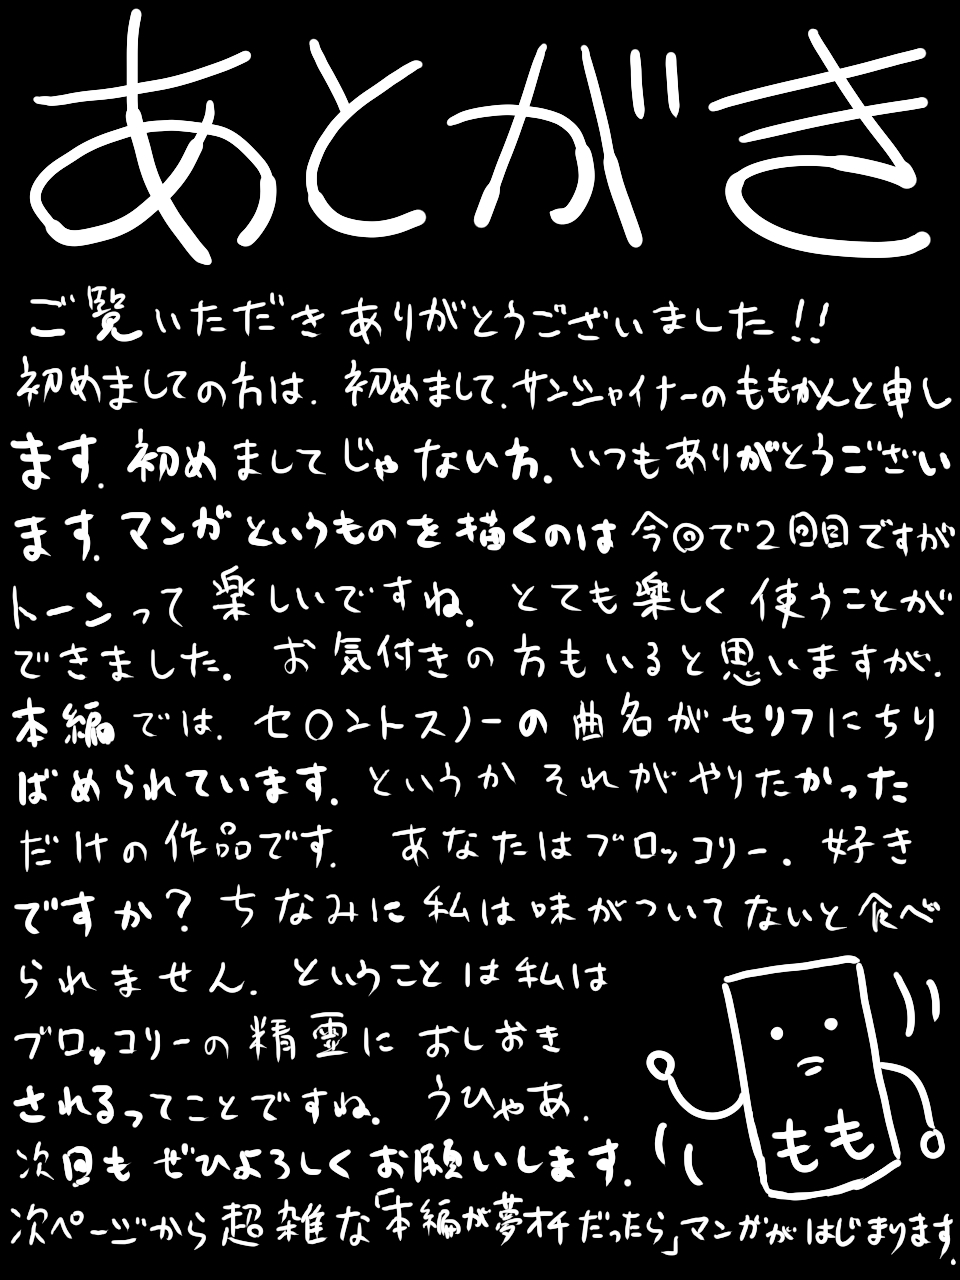 あとがき
ご覧いただきありがとうございました!!
初めましての方は.初めまして.サンシャイナーのももかんと申し
ます.初めましてじゃない方.いつもありがとうござい
ます.マンガというものを描くのは今回で2回目ですが
トーンって楽しいですね.とても楽しく使うことが
できました.お気付きの方もいると思いますが.
本編では.セ○ントスノーの曲名がセリフにちり
ばめられています.というかそれがやりたかった
だけの作品です.あなたはブロッコリー.好き
ですか?ちなみに私は味がついてないと食べ
られません.ということは私は
ブロッコリーの精霊におしおき
されるってことですね.うひゃあ.
次回もぜひよろしくお願いします.
次ページから超雑な「本編が夢オチだったら」マンガがはじまります.
もも